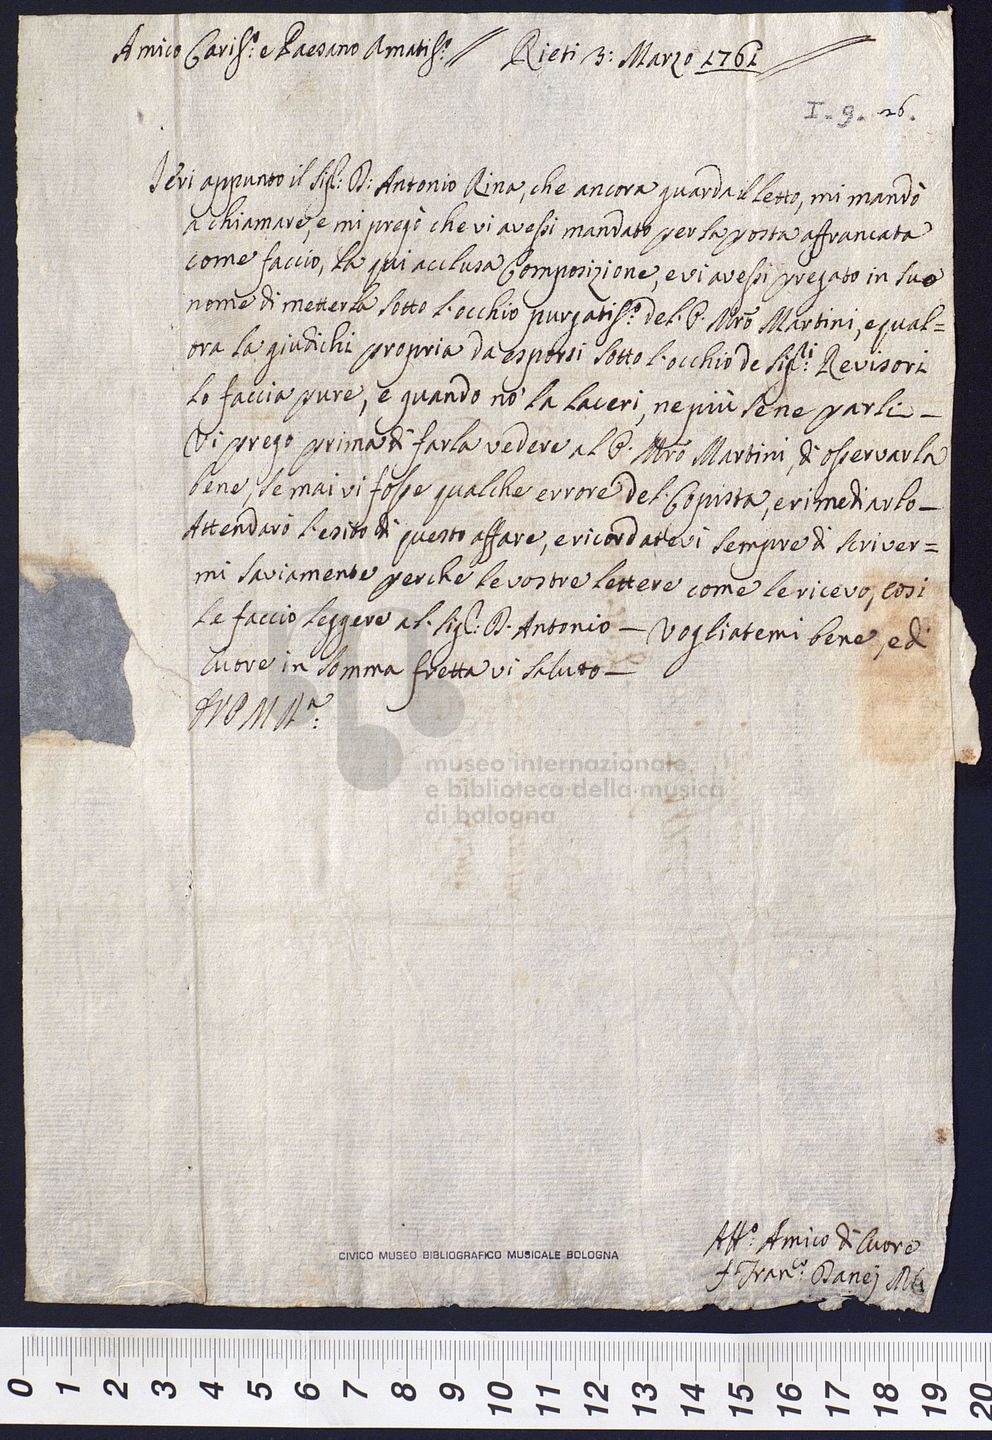 Amico Cariss.o e Paesano Amatiss.o // Rieti 3: Marzo 1761
I. 9. 26.
Ieri appunto il Sig.r D: Antonio Rina, che ancora guarda il letto, mi mandò
a chiamare, e mi pregò che vi avessi mandato per la posta affrancata
come faccio, la qui acclusa Composizione, e vi avessi pregato in suo
nome di metterla sotto l'occhio purgatiss.o del P. Mro Martini, e qual=
ora la giudichi propria da esporsi sotto l'occhio de Sig.ri Revisori
lo faccia pure, e quando nò la laceri, ne più se ne parli —
Vi prego prima di farla vedere al P. Mro Martini, di osservarla
bene, se mai vi fosse qualche errore del Copista, e rimediarlo —
Attendarò l'esito di questo affare, e ricordatevi sempre di scriver=
mi saviamente perche le vostre lettere come le ricevo, così
le faccio leggere al Sig.r D. Antonio — Vogliatemi bene, e di
Cuore in somma fretta vi saluto —
museo internazionale
e biblioteca della musica
di bologna
CIVICO MUSEO BIBLIOGRAFICO MUSICALE BOLOGNA
Aff.o Amico di Cuore
f. Fran.co Danej
0 1 2 3 4 5 6 7 8 9 10 11 12 13 14 15 16 17 18 19 20